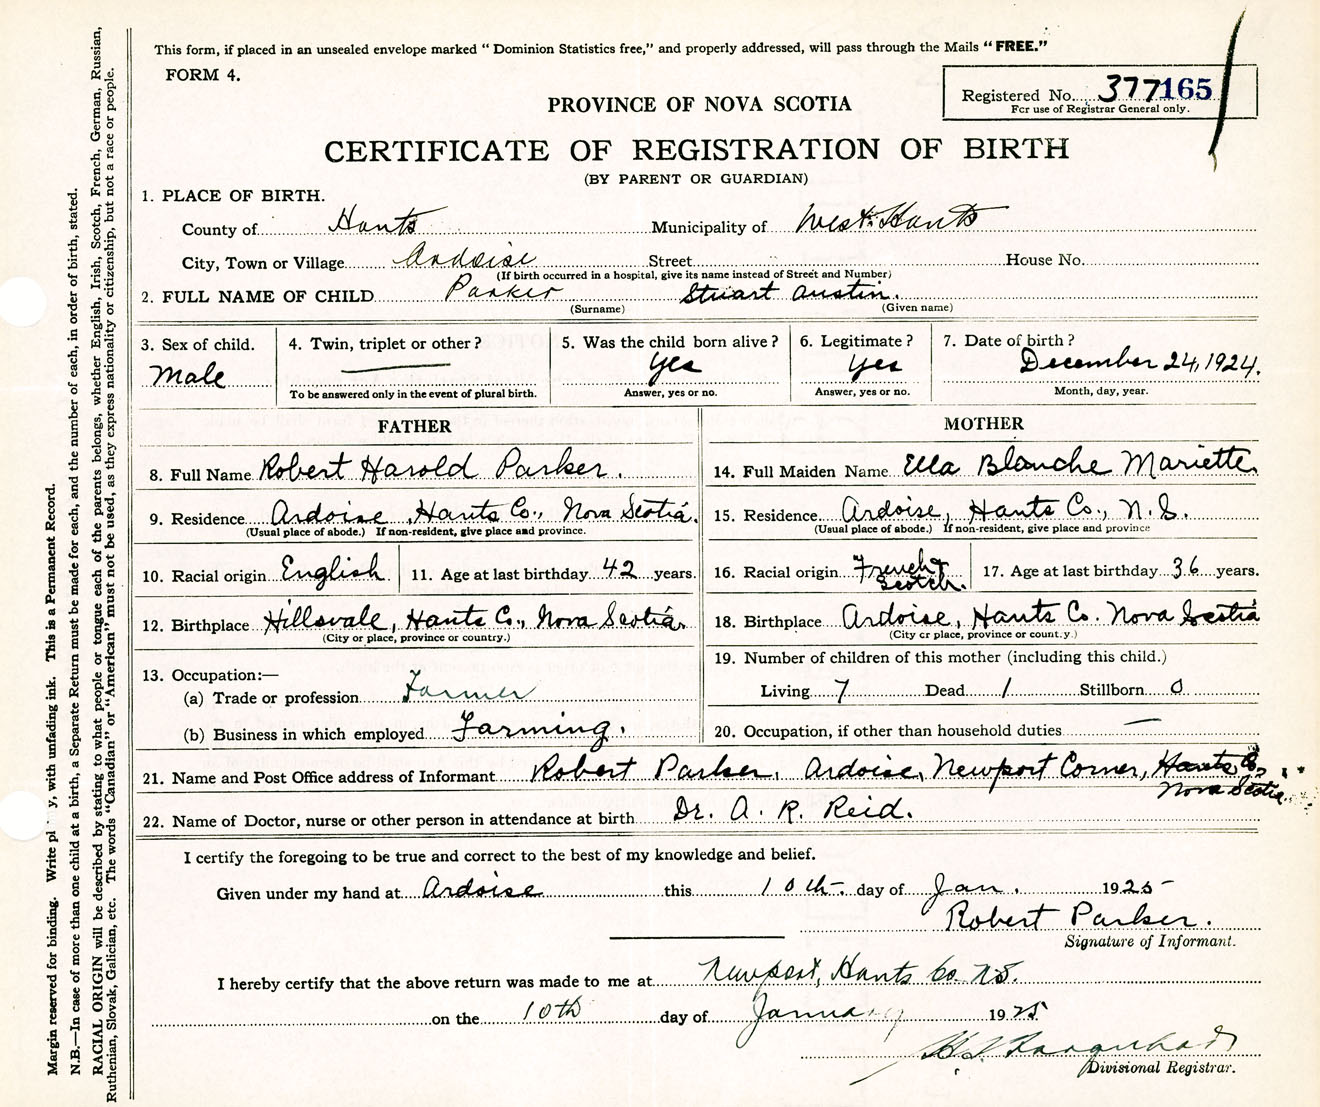 This form, if placed in an unsealed envelope marked “ Dominion Statistics free,” and properly addressed, will pass through the Mails “ FREE.”
FORM 4.
Registered No. 377165
For use of Registrar General only.
PROVINCE OF NOVA SCOTIA
CERTIFICATE OF REGISTRATION OF BIRTH
(BY PARENT OR GUARDIAN)
1. PLACE OF BIRTH.
County of Hants Municipality of West Hants
City, Town or Village Ardoise Street House No.
(If birth occurred in a hospital, give its name instead of Street and Number)
2. FULL NAME OF CHILD Parker Stuart Austin.
(Surname) (Given name)
3. Sex of child. 4. Twin, triplet or other? 5. Was the child born alive? 6. Legitimate? 7. Date of birth?
Male — Yes Yes December 24, 1924.
To be answered only in the event of plural birth. Answer, yes or no. Answer, yes or no. Month, day, year.
FATHER MOTHER
8. Full Name Robert Harold Parker. 14. Full Maiden Name Ella Blanche Mariette
9. Residence Ardoise, Hants Co., Nova Scotia. 15. Residence Ardoise, Hants Co., N.S.
(Usual place of abode.) If non-resident, give place and province. (Usual place of abode.) If non-resident, give place and province
10. Racial origin English 11. Age at last birthday 42 years. 16. Racial origin French & Scotch. 17. Age at last birthday 36 years.
12. Birthplace Hillsvale, Hants Co., Nova Scotia. 18. Birthplace Ardoise, Hants Co. Nova Scotia
(City or place, province or country.) (City or place, province or country.)
13. Occupation:— 19. Number of children of this mother (including this child.)
(a) Trade or profession Farmer Living 7 Dead 1 Stillborn 0
(b) Business in which employed Farming. 20. Occupation, if other than household duties —
21. Name and Post Office address of Informant Robert Parker, Ardoise, Newport Corner, Hants Co.,
Nova Scotia.
22. Name of Doctor, nurse or other person in attendance at birth Dr. A. R. Reid.
I certify the foregoing to be true and correct to the best of my knowledge and belief.
Given under my hand at Ardoise this 10th. day of Jan. 1925
Robert Parker.
Signature of Informant.
I hereby certify that the above return was made to me at Newport, Hants Co. N.S.
on the 10th day of January 1925
Divisional Registrar.
Margin reserved for binding. Write pl y, with unfading ink. This is a Permanent Record.
N.B.—In case of more than one child at a birth, a Separate Return must be made for each, and the number of each, in order of birth, stated.
RACIAL ORIGIN will be described by stating to what people or tongue each of the parents belongs, whether English, Irish, Scotch, French, German, Russian,
Ruthenian, Slovak, Galician, etc. The words “Canadian” or “American” must not be used, as they express nationality or citizenship, but not a race or people.